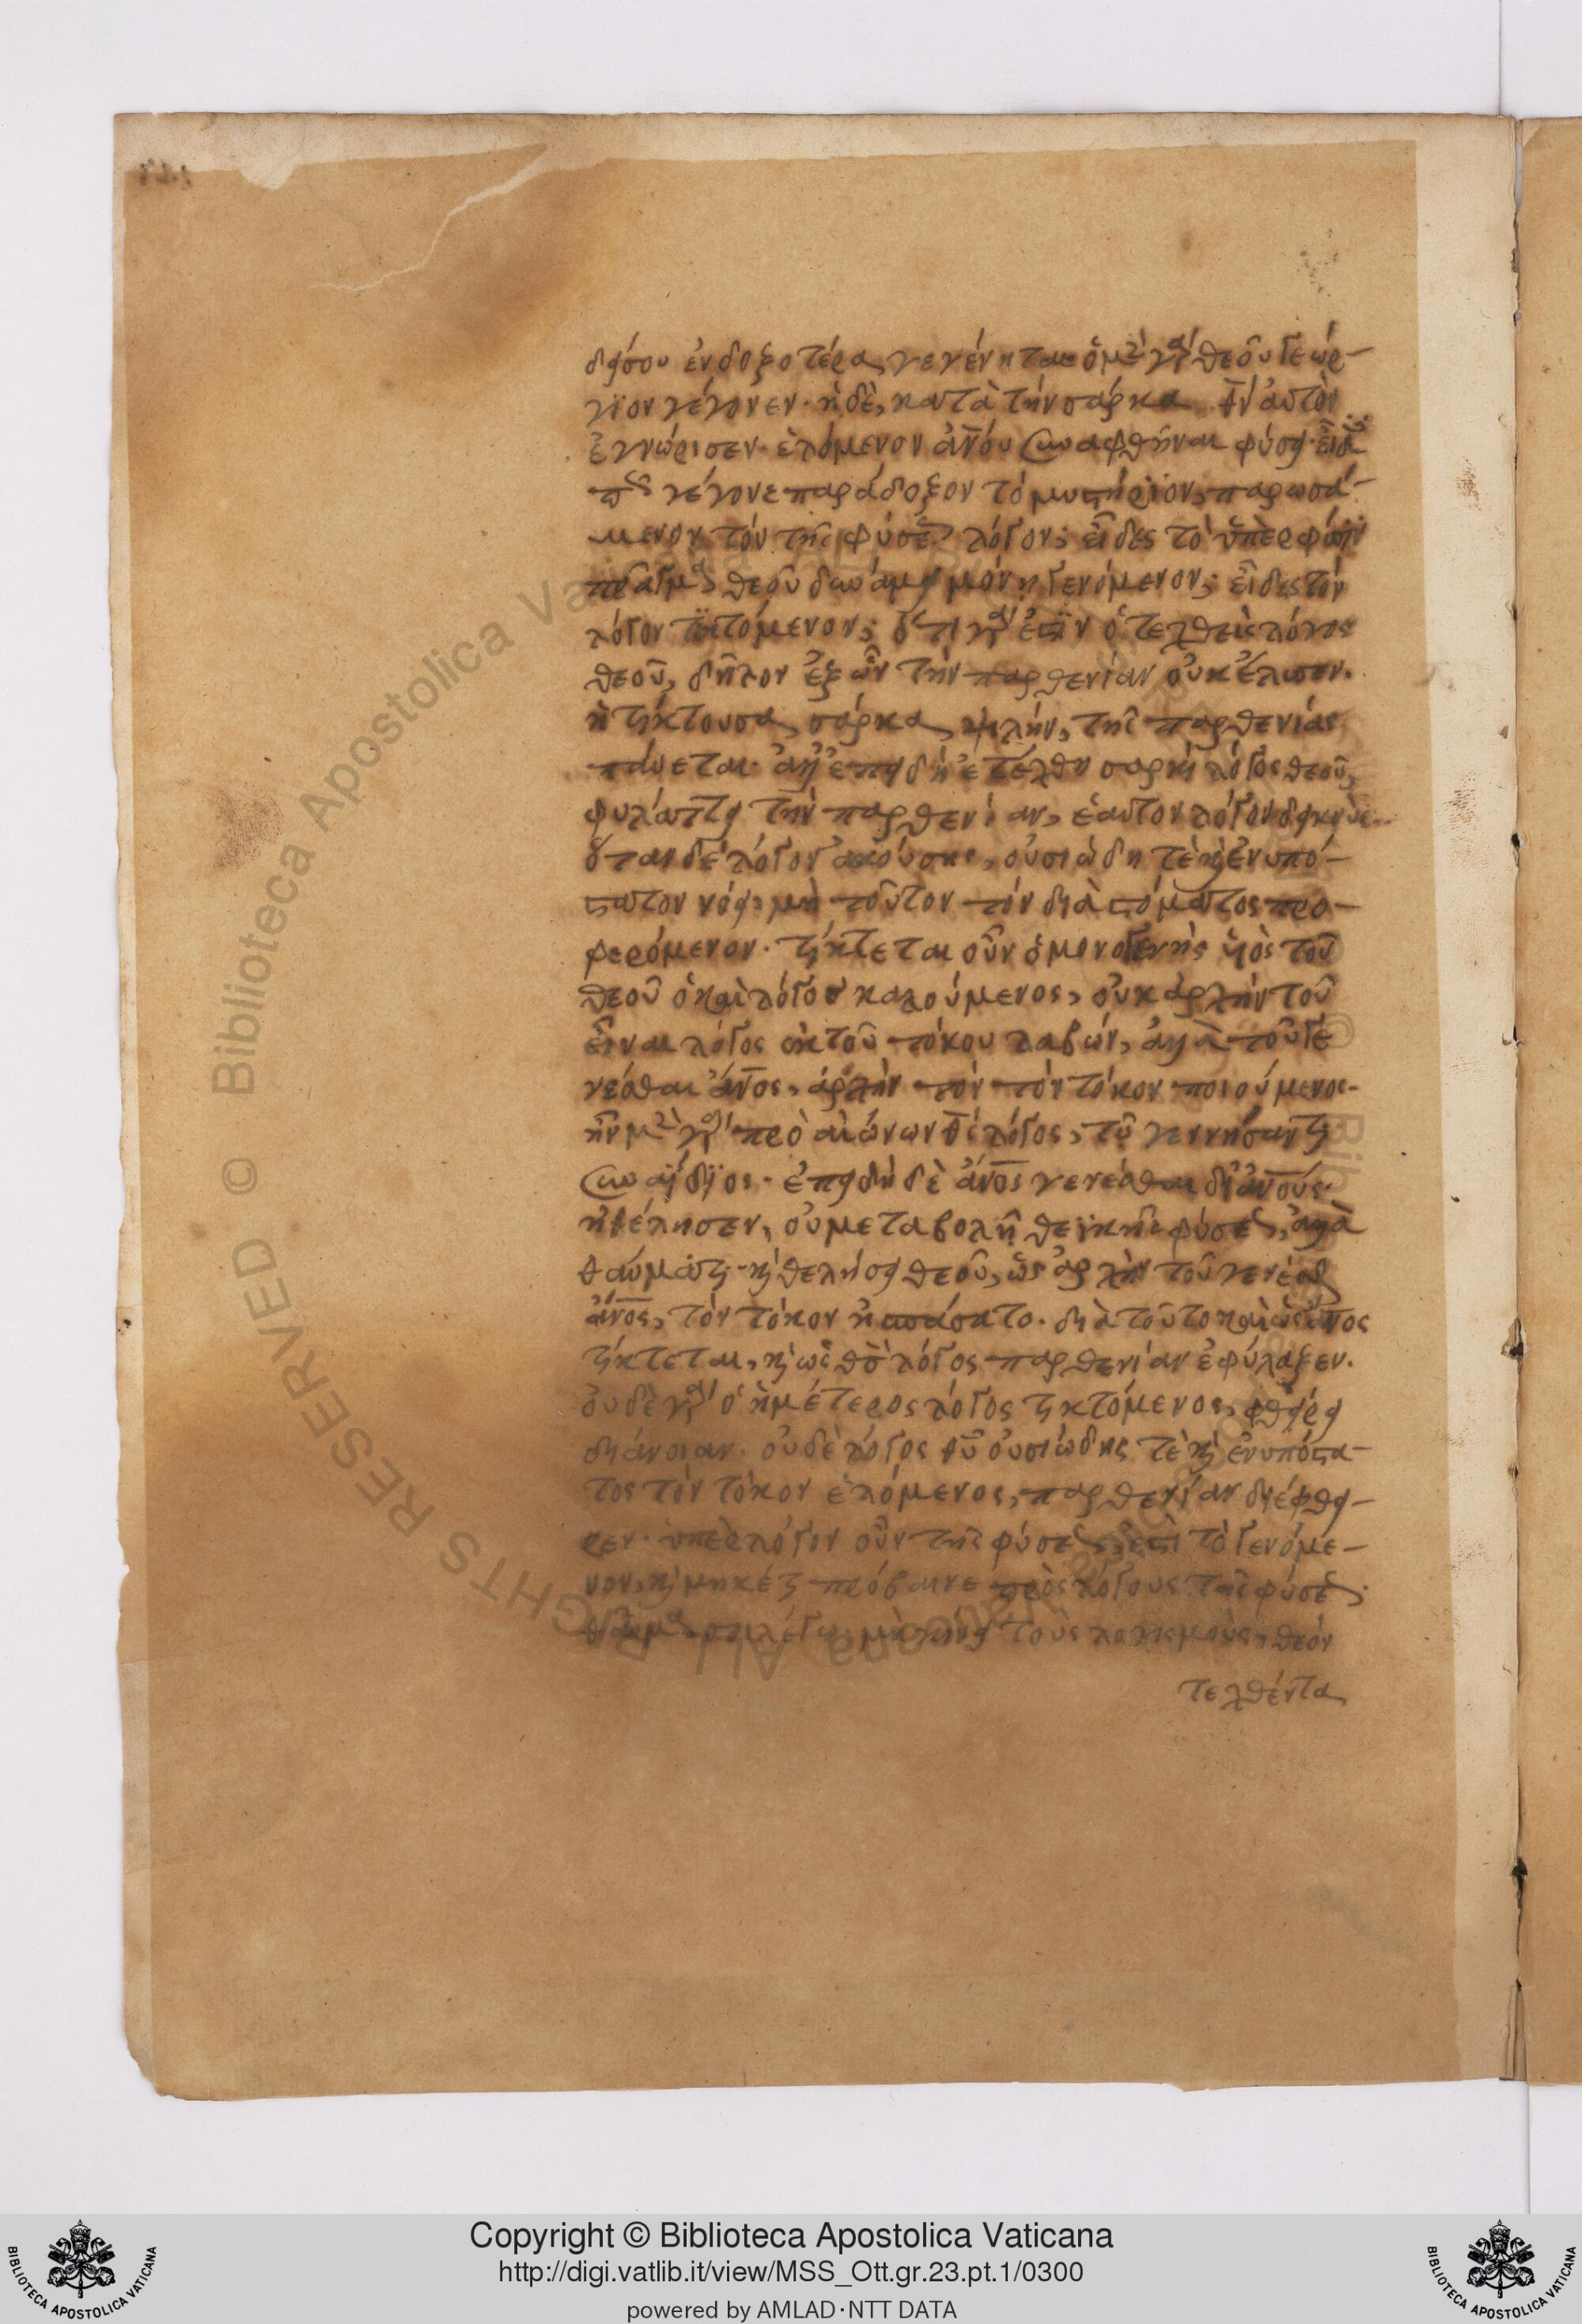 δείσου ἐνδοξοτέρα γεγένηται· ὁ μὲν γὰρ θεοῦ γεώρ-
γιον γέγονεν· ἡ δὲ, κατὰ τὴν σάρκα θν̄ αὐτὸν
ἐγνώρισεν· ἑλόμενον ἀνο̄υ συναφθῆναι φύσει· εἶτα
πῶς γέγονε παράδοξον τὸ μυστήριον, παρωσά-
μενον τὸν τῆς φύσεως λόγον; εἶδες τὸ ὑπὲρ φύσιν
πρᾶγμα, θεοῦ δυνάμει μόνη γενόμενον; εἶδες τὸν
λόγον τικτόμενον; ὅτι γὰρ ἐστὶν ὁ τεχθεὶς λόγος
θεοῦ, δῆλον ἐξ ὧν τὴν παρθενίαν οὐκ ἔλυσεν.
ἡ τίκτουσα σάρκα ψιλὴν, τῆς παρθενίας
παύεται· ἀλλ' ἐπειδὴ ἐτέχθη σαρκὶ λόγος θεοῦ,
φυλάττει τὴν παρθενίαν, ἑαυτὸν λόγον δεικνύς.
ὅταν δὲ λόγον ἀκούσης, οὐσιώδη τὲ κὶ ἐνυπό-
στατον νόει, μὴ τοῦτον τὸν διὰ στόματος προ-
φερόμενον. τίκτεται οὖν ὁ μονογενὴς υἱὸς τοῦ
θεοῦ ὁ καὶ λόγος καλούμενος, οὐκ ἀρχὴν τοῦ
εἶναι λόγος ἐκ τοῦ τόκου λαβών, ἀλλὰ τοῦ γε
νέσθαι ἄνο̄ς, ἀρχὴν τὸν τὸν τόκον ποιούμενος.
ἦν μὲν γὰρ πρὸ αἰώνων θς̄ λόγος, τῷ γεννήσαντι
συναΐδιος. ἐπειδὴ δὲ ἄνο̄ς γενέσθαι δι' ἀνο̄υς
ἠθέλησεν, οὐ μεταβολῆ θεϊκῆς φύσεως, ἀλλὰ
θαύματι κὶ θελήσει θεοῦ, ὡς ἀρχὴν τοῦ γενέσθαι
ἄνο̄ς, τὸν τόκον ἠσπάσατο. διὰ τοῦτο καὶ ὡς ἄνο̄ς
τίκτεται, κὶ ὡς θς̄ λόγος παρθενίαν ἐφύλαξεν.
οὐδὲ γὰρ ὁ ἡμέτερος λόγος τικτόμενος, φθείρει
διάνοιαν. οὐδὲ λόγος θῡ οὐσιώδης τὲ κὶ ἐνυπόστα-
τος τὸν τόκον ἑλόμενος, παρθενίαν διέφθει-
ρεν. ὑπὲρ λόγον οὖν τῆς φύσεως, ἐστὶ τὸ γενόμε-
νον, κὶ μηκέτι πρόβαινε πρὸς λόγους τῆς φύσεως·
θαῦμα σοι λέγω· μὴ κίνει τοὺς λογισμούς, θεόν
τεχθέντα